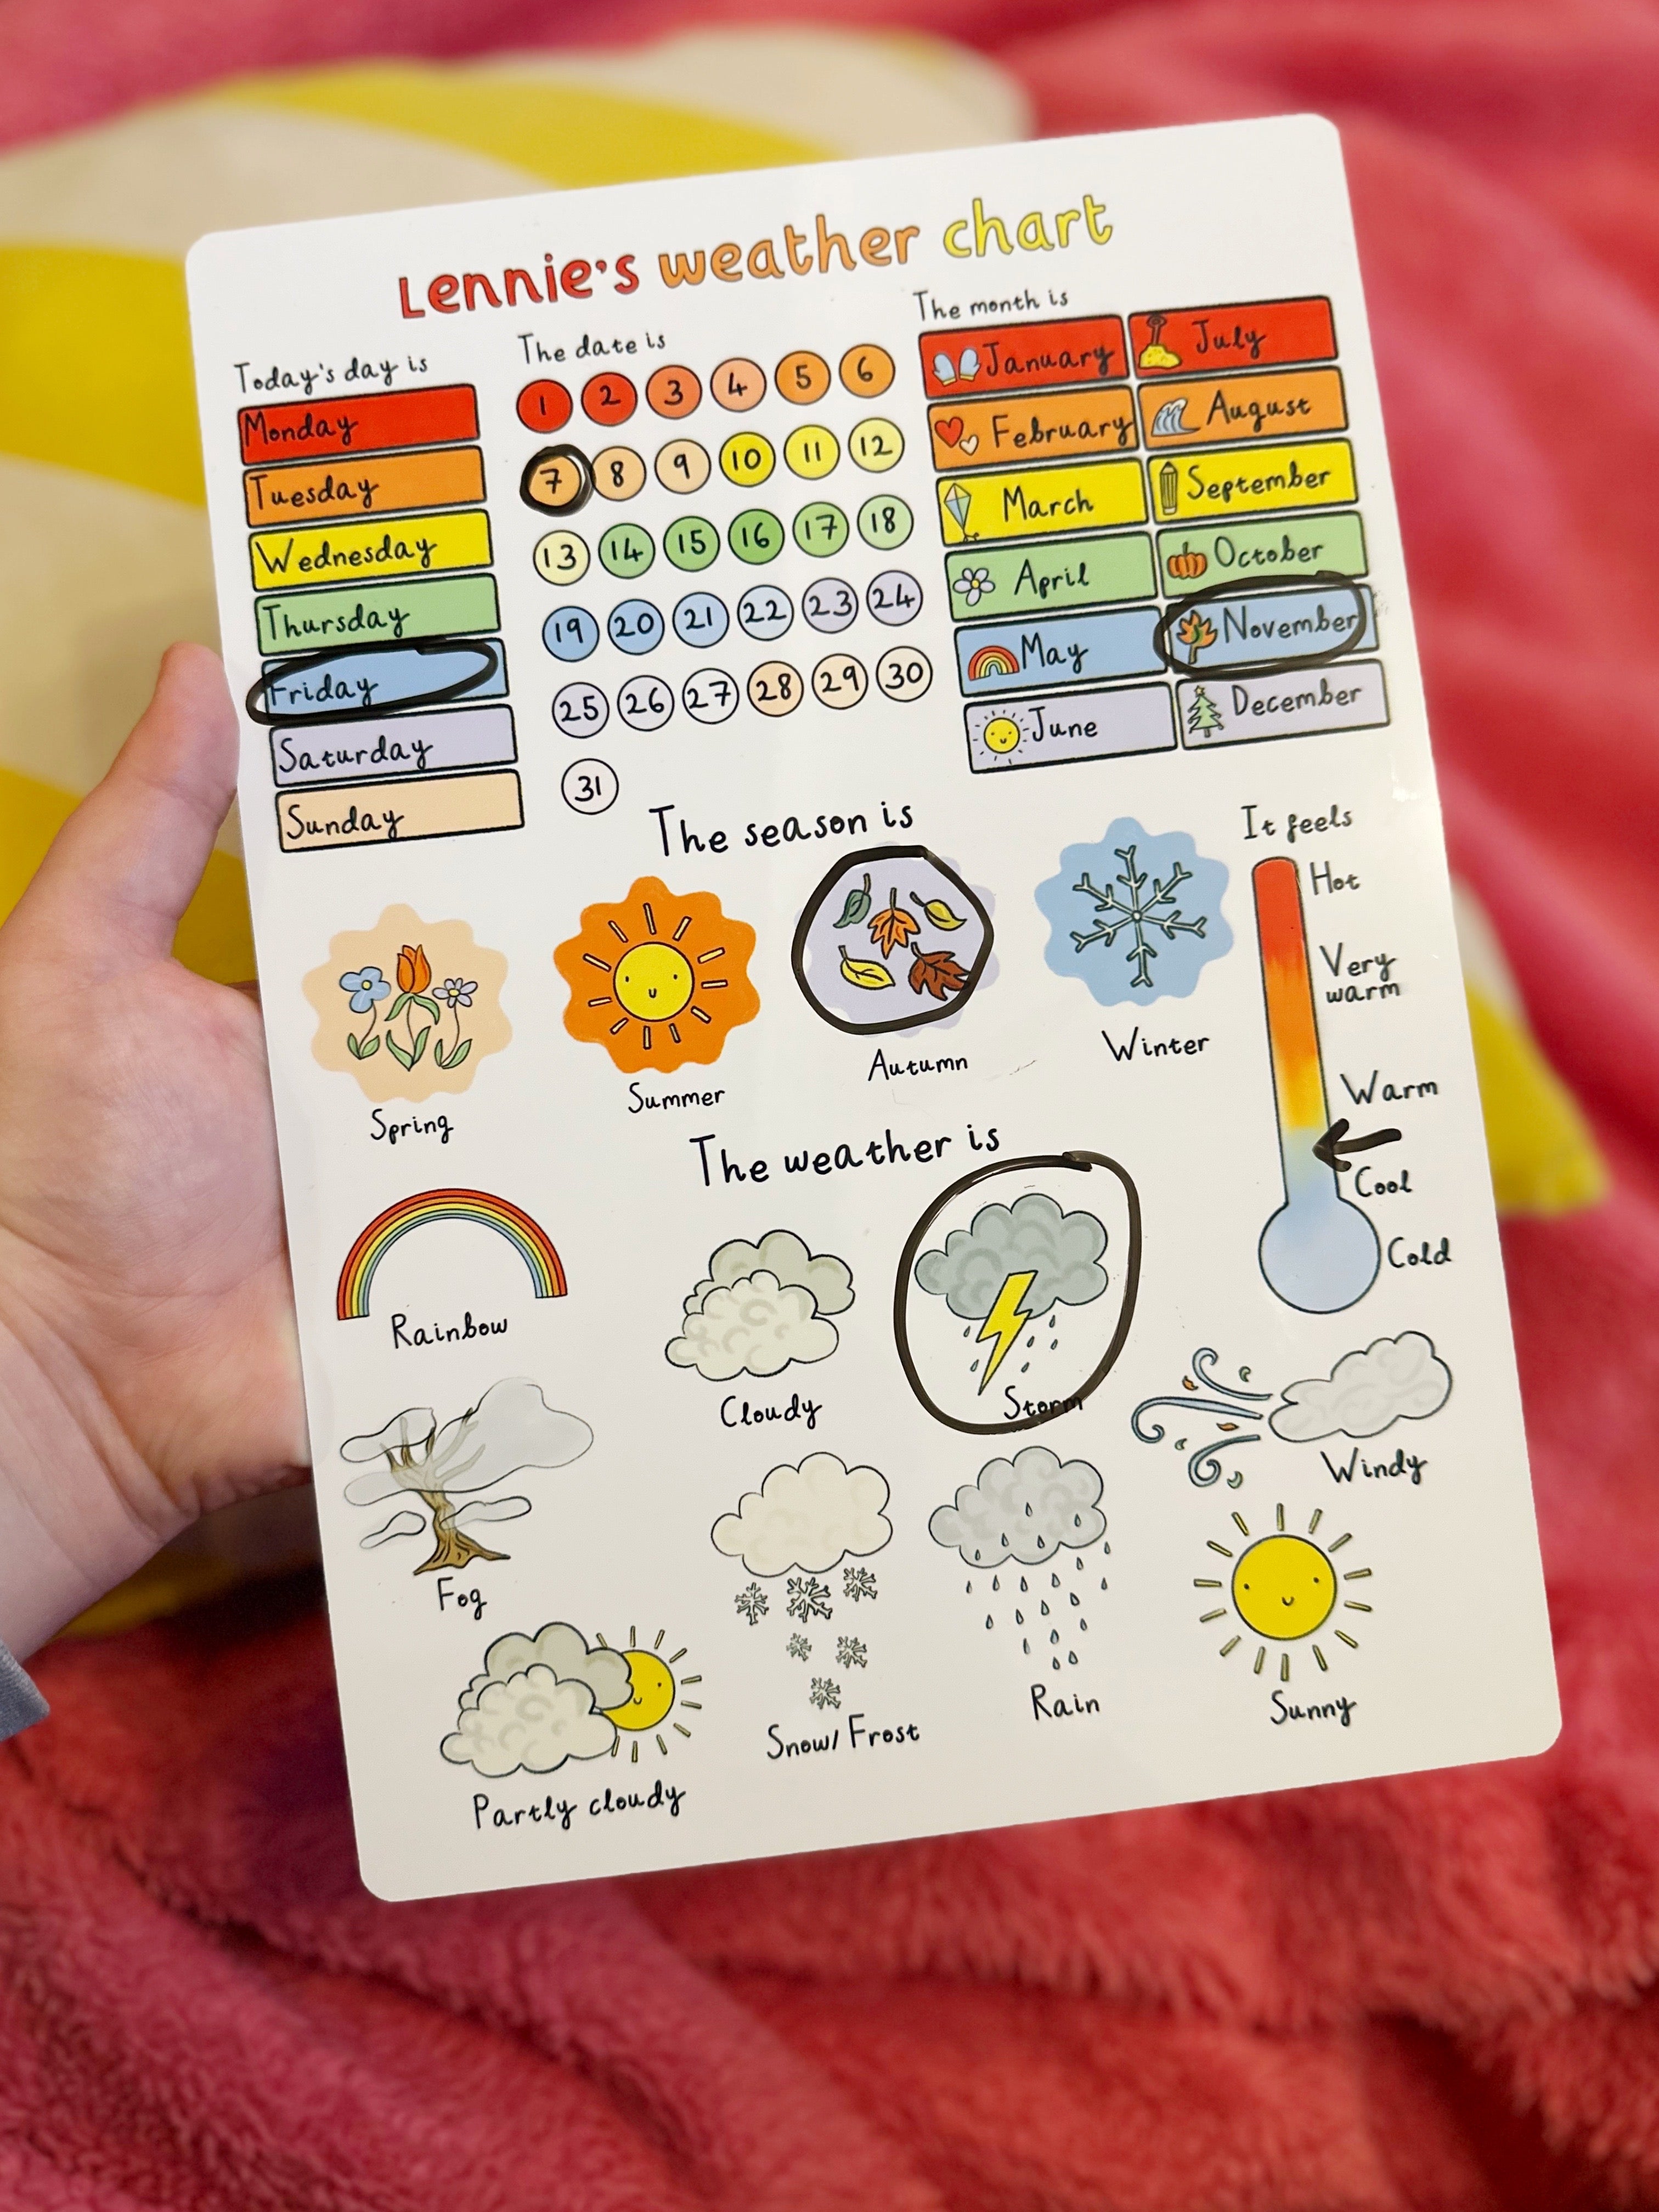 Lennie's weather chart
Today's day is
Monday
Tuesday
Wednesday
Thursday
Friday
Saturday
Sunday
The date is
1 2 3 4 5 6
7 8 9 10 11 12
13 14 15 16 17 18
19 20 21 22 23 24
25 26 27 28 29 30
31
The month is
January July
February August
March September
April October
May November
June December
The season is
Spring
Summer
Autumn
Winter
It feels
Hot
Very
warm
Warm
Cool
Cold
The weather is
Rainbow
Cloudy
Storm
Windy
Fog
Snow/Frost
Rain
Sunny
Partly cloudy